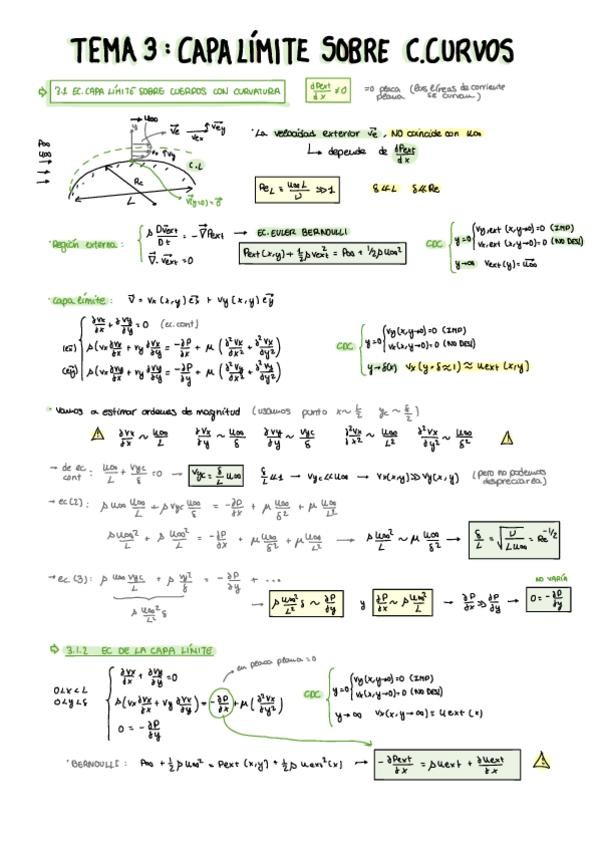 TEMA 3: CAPA LÍMITE SOBRE C.CURVOS
⇨ 3.1 EC. CAPA LÍMITE SOBRE CUERPOS CON CURVATURA
dPext/dx ≠ 0
=0 placa plana (las líneas de corriente se curvan)
P∞
U∞
U∞
Ve
Vex
Vey
C.L
Rc
L
V(y=0)=0
· La velocidad exterior Ve, NO coincide con U∞
↳ depende de dPext/dx
ReL = U∞L/ν >>1
δ<<L δ<<Rc
· Región externa:
ρ DVext/Dt = -∇Pext
∇·Vext = 0
→ EC. EULER BERNOULLI
Pext(x,y) + 1/2 ρVext² = P∞ + 1/2 ρU∞²
CDC
y=0 Vy,ext (x,y→0)=0 (IMP)
Vx,ext (x,y→0)=0 (NO DESL)
y→∞ Vext(y) = U∞
· Capa límite: V = Vx(x,y) ex + Vy(x,y) ey
∂Vx/∂x + ∂Vy/∂y = 0 (ec.cont)
(ex) ρ(Vx ∂Vx/∂x + Vy ∂Vx/∂y) = -∂P/∂x + μ(∂²Vx/∂x² + ∂²Vx/∂y²)
(ey)
CDC
y=0 Vy(x,y→0)=0 (IMP)
Vx(x,y→0)=0 (NO DESL)
y→δ(x) Vx(y·δ≈1) ≈ Uext(x,y)
· Vamos a estimar ordenes de magnitud (usamos punto x~L/2 yc~δ/2)
∂Vx/∂x ~ U∞/L ∂Vx/∂y ~ U∞/δ ∂Vy/∂y ~ Vyc/δ ∂²Vx/∂x² ~ U∞/L² ∂²Vx/∂y² ~ U∞/δ²
→ de ec cont: U∞/L + Vyc/δ = 0 → Vyc = δ/L U∞ δ/L <<1 → Vyc<<U∞ → Vx(x,y)>>Vy(x,y) (pero no podemos despreciarla)
→ ec(2): ρU∞ U∞/L + ρVyc U∞/δ = -∂P/∂x + μ U∞/δ² + μ U∞/L²
ρ U∞²/L + ρ U∞²/L = -∂P/∂x + μ U∞/δ² + μ U∞/L² → ρ U∞²/L ~ μ U∞/δ² → δ/L = √(ν/LU∞) = Re^-1/2
→ ec(3): ρU∞ Vyc/L + ρ Vy²/δ = -∂P/∂y + ...
ρ U∞²/L² δ
→ ρ U∞²/L² δ ~ ∂P/∂y y ∂P/∂x ~ ρ U∞²/L → ∂P/∂x >> ∂P/∂y →
NO VARÍA
0 = -∂P/∂y
⇨ 3.1.2 EC DE LA CAPA LÍMITE
en placa plana = 0
0<x<L
0<y<δ
∂Vx/∂x + ∂Vy/∂y = 0
ρ(Vx ∂Vx/∂x + Vy ∂Vx/∂y) = -∂P/∂x + μ(∂²Vx/∂y²)
0 = -∂P/∂y
CDC
y=0 Vy(x,y→0)=0 (IMP)
Vx(x,y→0)=0 (NO DESL)
y→∞ Vx(x,y→∞) = Uext(x)
· BERNOULLI: P∞ + 1/2 ρU∞² = Pext(x,y) + 1/2 ρUext²(x) → -∂Pext/∂x = ρUext + ∂Uext/∂x